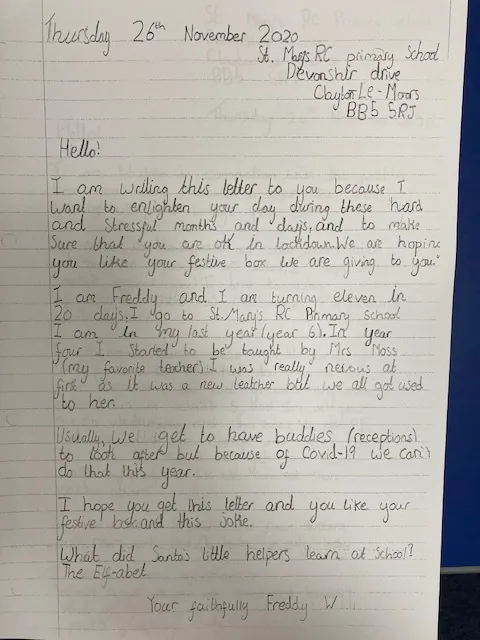 Thursday 26th November 2020
St. Marys RC primary School
Devonshir drive
Clayton Le-Moors
BB5 5RJ
Hello!
I am writing this letter to you because I
want to enlighten your day during these hard
and stressful months and days, and to make
sure that you are ok in lockdown. We are hoping
you like your festive box we are giving to you.
I am Freddy and I am turning eleven in
20 days. I go to St. Mary's RC Primary school
I am in my last year (year 6). In year
four I started to be taught by Mrs Moss
(my favorite teacher) I was really nerous at
first as it was a new teatcher but we all got used
to her.
Usually, we get to have buddies (receptions)
to look after but because of Covid-19 we can't
do that this year.
I hope you get this letter and you like your
festive box and this joke.
What did Santa's little helpers learn at school?
The Elf-abet
Your faithfully Freddy W